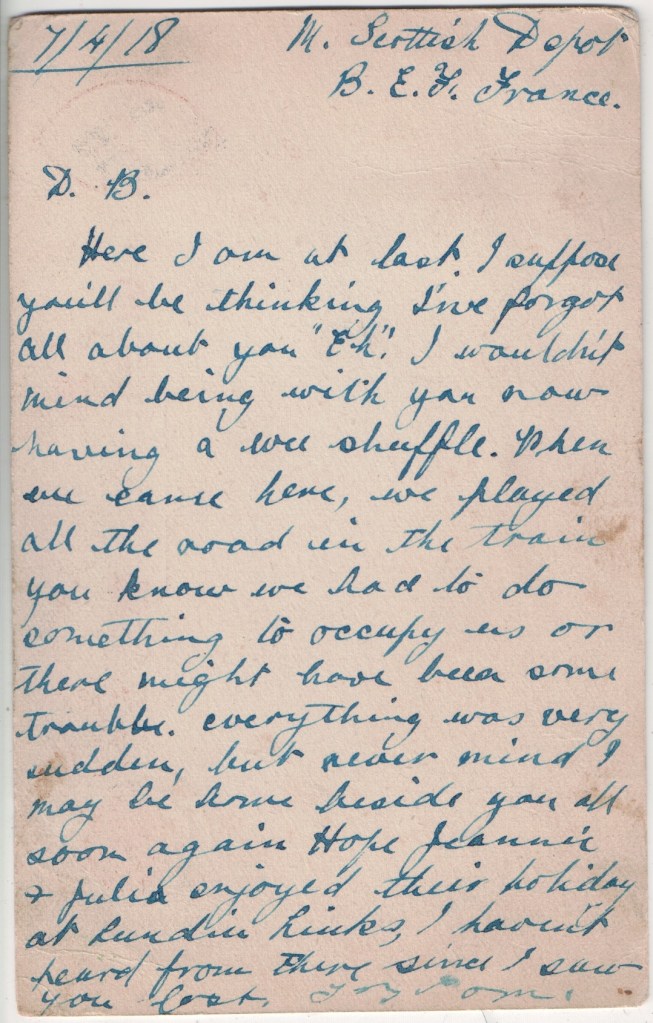 7/4/18 M. Scottish Depot
B. E. F. France.
D. B.
Here I am at last. I suppose
you'll be thinking I've forgot
all about you "Eh". I wouldn't
mind being with you now
having a wee shuffle. When
we came here, we played
all the road in the train
you know we had to do
something to occupy us or
there might have been some
trouble. everything was very
sudden, but never mind I
may be home beside you all
soon again Hope Jeannie
& Julia enjoyed their holiday
at Lundin Links, I haven't
heard from there since I saw
you last. Tom.